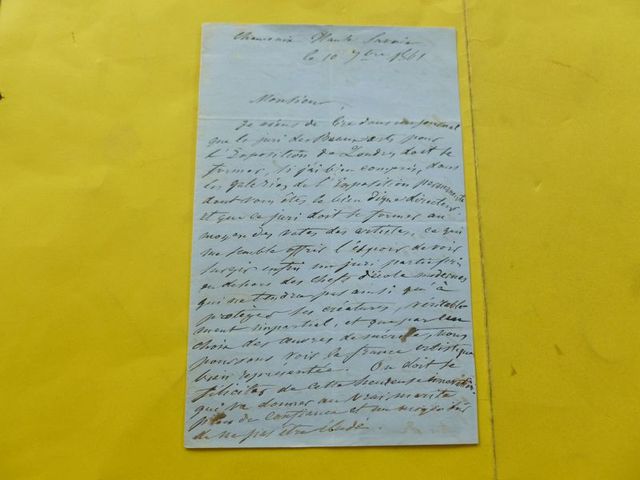 Chamonix Haute Savoie
le 10 7bre 1861
Monsieur
Je viens de lire dans un journal
que le juri des Beaux arts pour
l'Exposition de Londres doit se
former, si j'ai bien compris, dans
les galeries de l'Exposition permanente
dont vous êtes le bien digne directeur
et que ce juri doit se former au
moyen des votes des artistes, ce qui
me semble offrir l'espoir de voir
surgir enfin un juri
en dehors des chefs d'école modernes
qui ne tendra pas ainsi qu'à
protéger ses créatures, véritable
ment impartial, et que par
choix des œuvres de mérite, nous
pourrons voir la france artistique
bien représentée. On doit se
féliciter de cette heureuse
qui va donner au vrai mérite
plus de confiance et un
de ne pas être éludé.